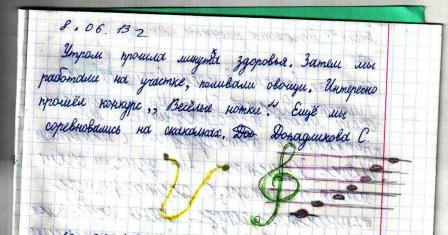 8.06.13г
Утром прошла минутка здоровья. Затем мы
работали на участке, поливали овощи. Интересно
прошёл конкурс „Весёлые нотки". Ещё мы
соревновались на скакалках. С.